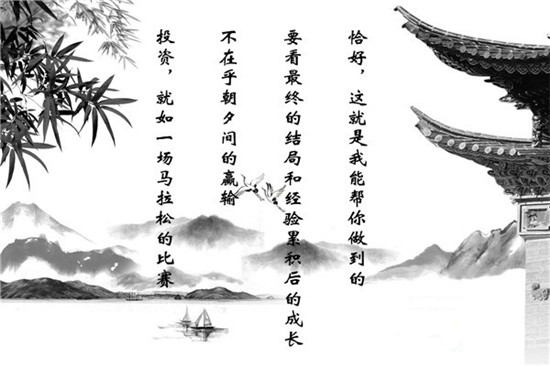 投资，就如一场马拉松的比赛
不在乎朝夕间的赢输
要看最终的结局和经验累积后的成长
恰好，这就是我能帮你做到的